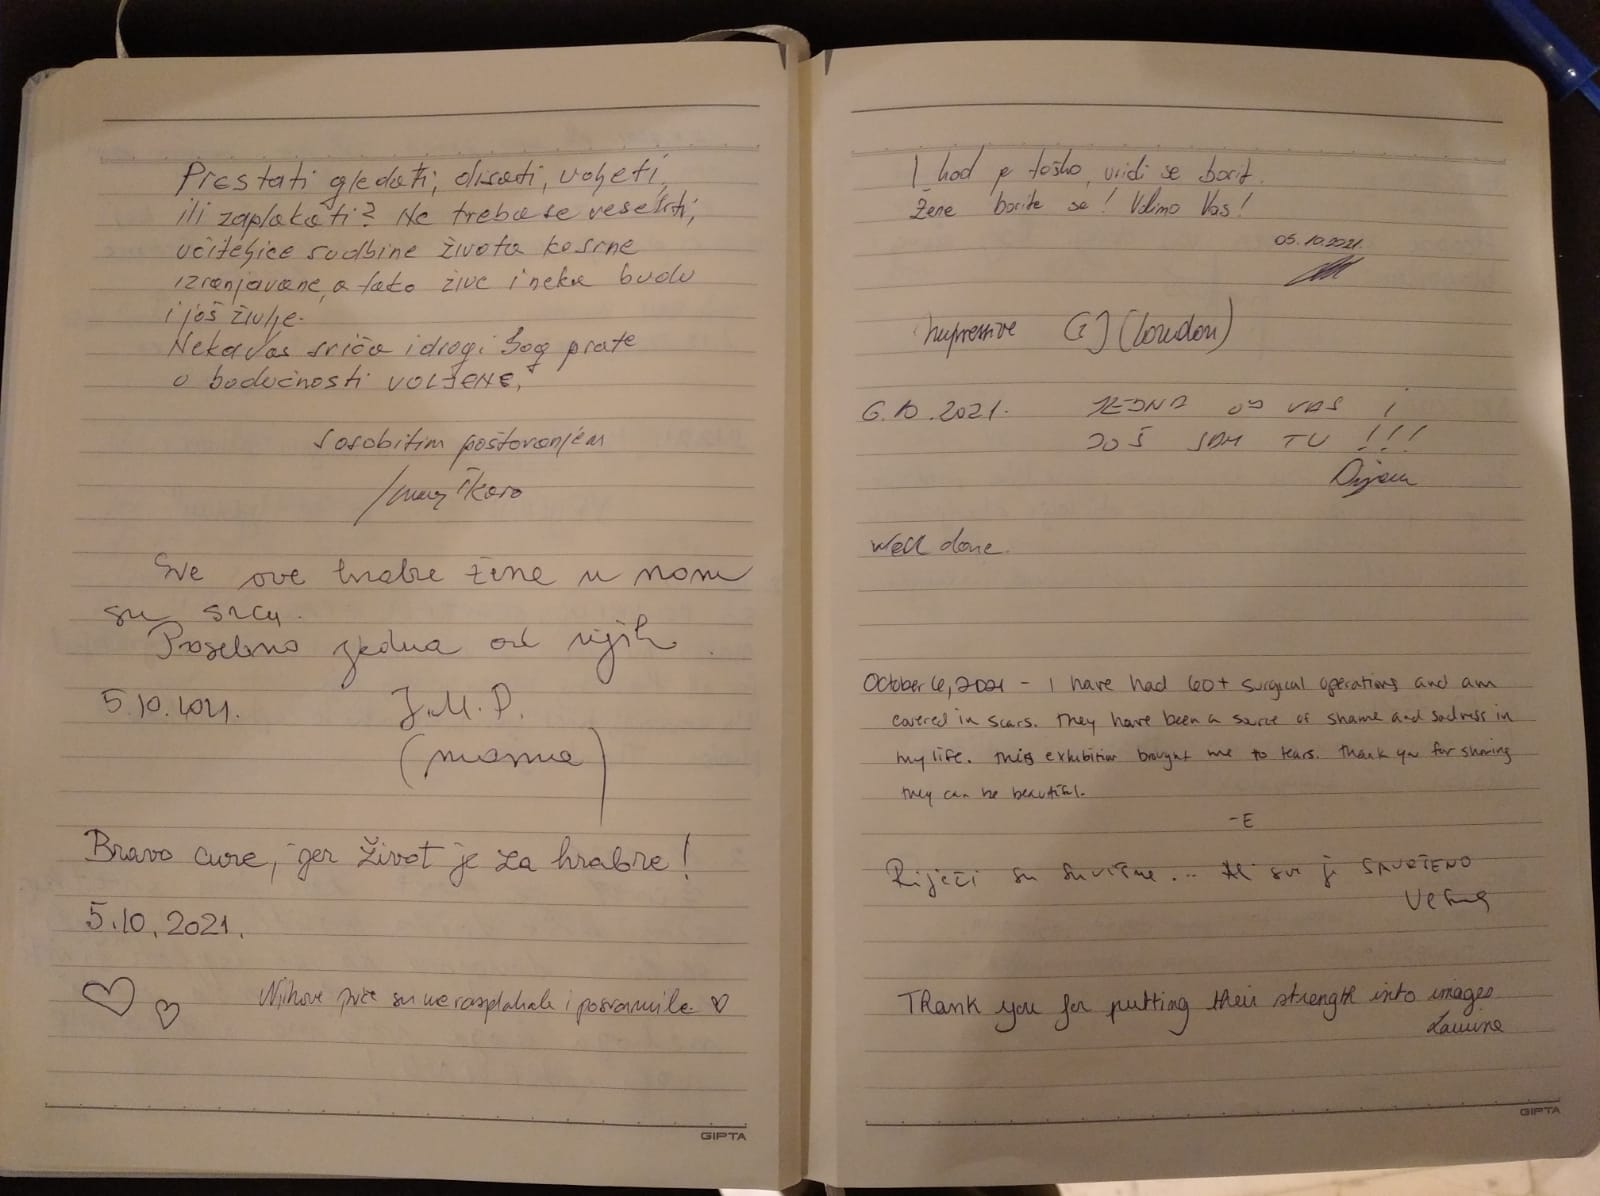 Prestati gledati, disati, voljeti,
ili zaplakati? Ne treba se veseliti,
učiteljice sudbine života kosrne
izranjavane, a tako žive i neka budu
i još življe.
Neka Vas srića i dragi Bog prate
o budućnosti VOLJENE,
s osobitim poštovanjem
Škoro
Sve ove hrabre žene u mom
su srcu.
Posebno jedna od njih.
5.10.2021.
J.M.P.
(mama)
Bravo cure, jer život je za hrabre!
5.10.2021.
Njihove priče su me rasplakale i posramile. ♡
I kad je teško, vridi se borit.
Žene borite se! Volimo Vas!
05.10.2021.
Impressive GJ (London)
6.10.2021. JEDNA OD VAS i
JOŠ SAM TU !!!
Well done.
October 6, 2021 - I have had 60+ surgical operations and am
covered in scars. They have been a source of shame and sadness in
my life. This exhibition brought me to tears. Thank you for showing
they can be beautiful.
-E
Riječi su suvišne... Al sve je SAVRŠENO
Vesna
Thank you for putting their strength into images
GIPTA
GIPTA